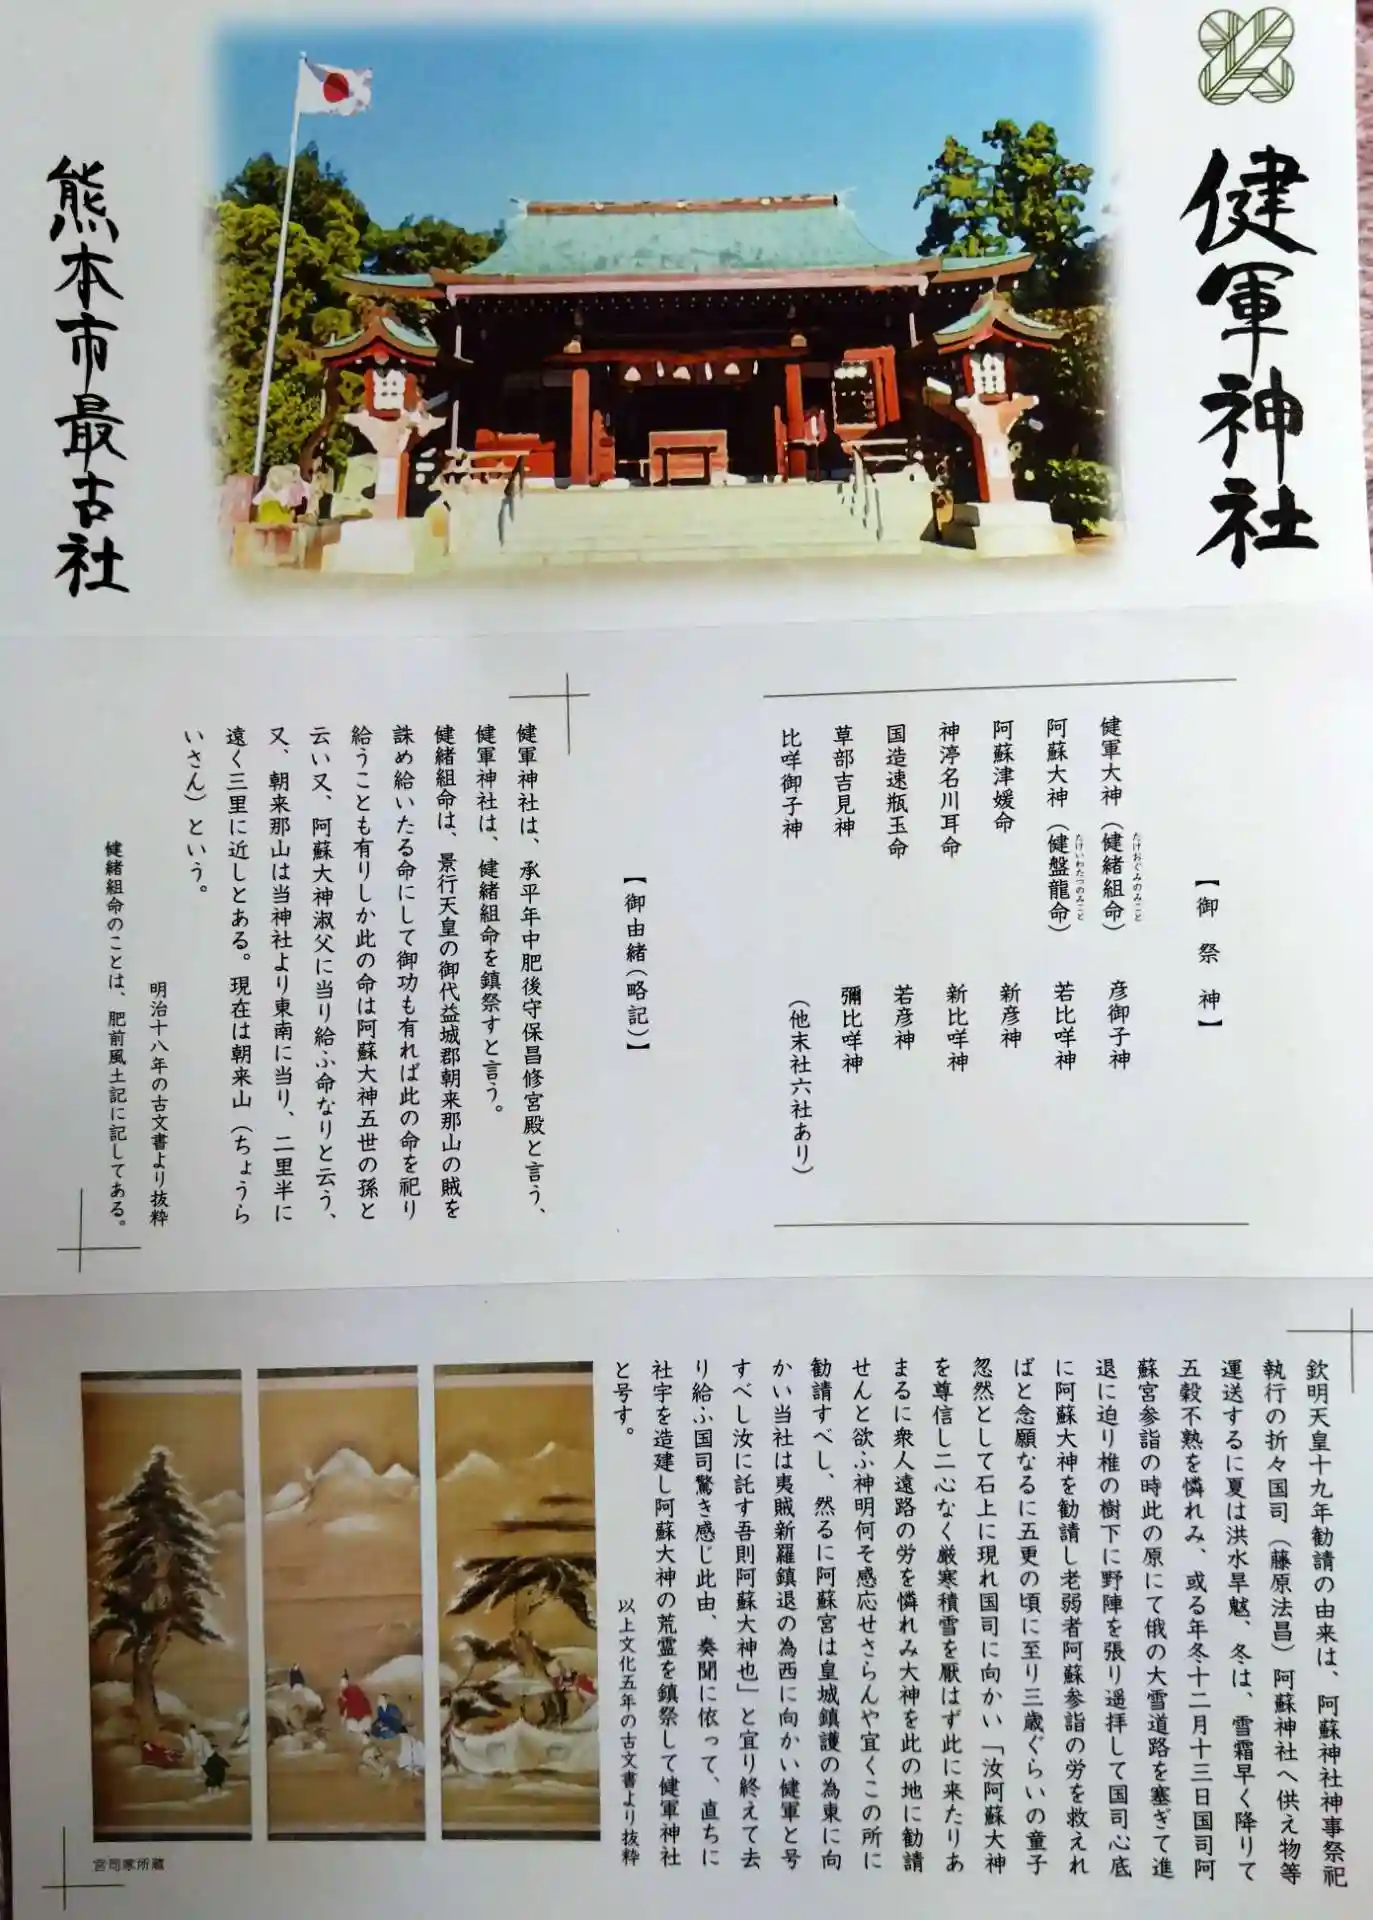 健軍神社
熊本市最古社
【御祭神】
健軍大神（健緒組命）
たけおぐみのみこと
阿蘇大神（健盤龍命）
たけいわたつのみこと
阿蘇津媛命
神渟名川耳命
国造速瓶玉命
草部吉見神
比咩御子神
彦御子神
若比咩神
新彦神
新比咩神
若彦神
彌比咩神
（他末社六社あり）
【御由緒（略記）】
健軍神社は、承平年中肥後守保昌修宮殿と言う、
健軍神社は、健緒組命を鎮祭すと言う。
健緒組命は、景行天皇の御代益城郡朝来那山の賊を
誅め給いたる命にして御功も有れば此の命を祀り
給うことも有りしか此の命は阿蘇大神五世の孫と
云い又、阿蘇大神淑父に当り給ふ命なりと云う、
又、朝来那山は当神社より東南に当り、二里半に
遠く三里に近しとある。現在は朝来山（ちょうら
いさん）という。
明治十八年の古文書より抜粋
健緒組命のことは、肥前風土記に記してある。
欽明天皇十九年勧請の由来は、阿蘇神社神事祭祀
執行の折々国司（藤原法昌）阿蘇神社へ供え物等
運送するに夏は洪水旱魃、冬は、雪霜早く降りて
五穀不熟を憐れみ、或る年冬十二月十三日国司阿
蘇宮参詣の時此の原にて俄の大雪道路を塞ぎて進
退に迫り椎の樹下に野陣を張り遥拝して国司心底
に阿蘇大神を勧請し老弱者阿蘇参詣の労を救えれ
ばと念願なるに五更の頃に至り三歳ぐらいの童子
忽然として石上に現れ国司に向かい「汝阿蘇大神
を尊信し二心なく厳寒積雪を厭はず此に来たりあ
まるに衆人遠路の労を憐れみ大神を此の地に勧請
せんと欲ふ神明何そ感応せさらんや宜くこの所に
勧請すべし、然るに阿蘇宮は皇城鎮護の為東に向
かい当社は夷賊新羅鎮退の為西に向かい健軍と号
すべし汝に託す吾則阿蘇大神也」と宣り終えて去
り給ふ国司驚き感じ此由、奏聞に依って、直ちに
社宇を造建し阿蘇大神の荒霊を鎮祭して健軍神社
と号す。
以上文化五年の古文書より抜粋
宮司家所蔵